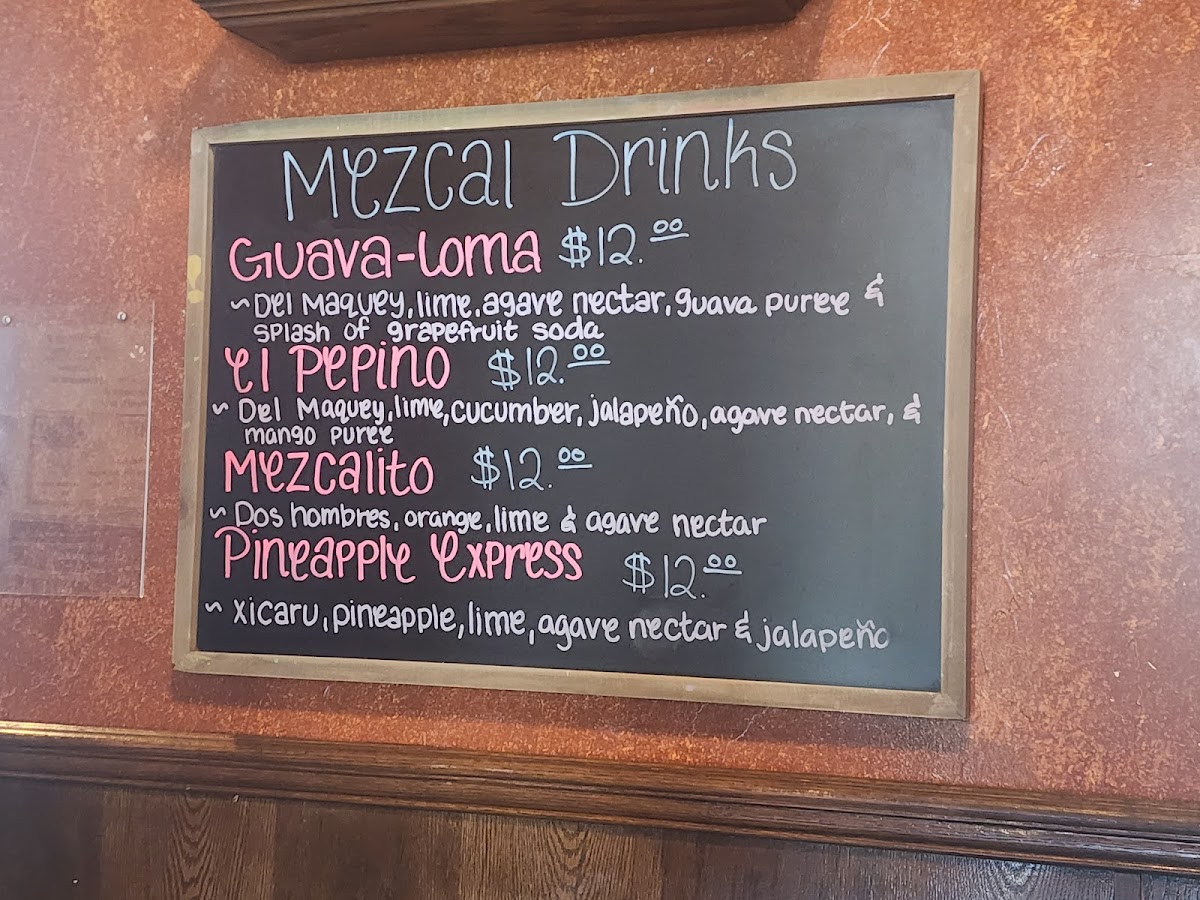 Mezcal Drinks
Guava-Loma $12.00
~ Del Maguey, lime, agave nectar, guava puree &
splash of grapefruit soda
El Pepino $12.00
~ Del Maguey, lime, cucumber, jalapeño, agave nectar, &
mango puree
Mezcalito $12.00
~ Dos hombres, orange, lime & agave nectar
Pineapple Express $12.00
~ xicaru, pineapple, lime, agave nectar & jalapeño